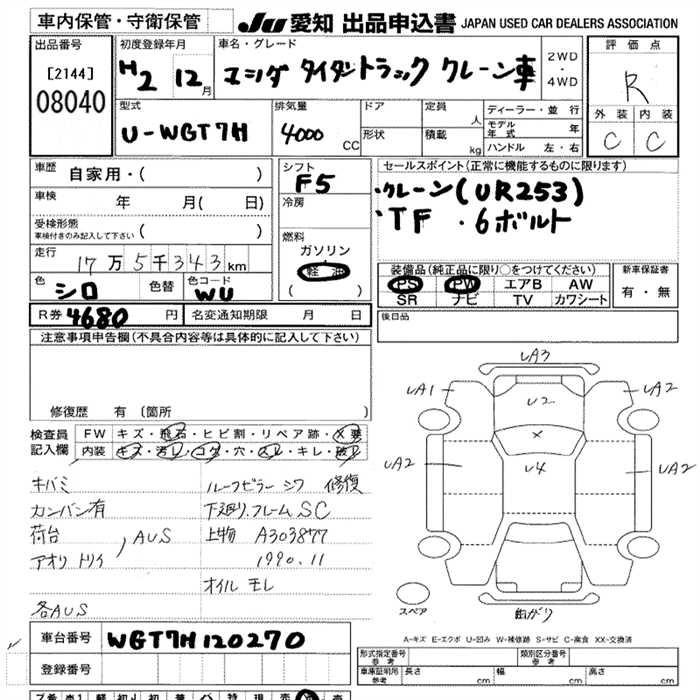 車内保管・守衛保管
JU 愛知 出品申込書 JAPAN USED CAR DEALERS ASSOCIATION
出品番号
[2144]
08040
初度登録年月
H2 12月
車名・グレード
マツダ タイタントラック クレーン車
2WD
・
4WD
評価点
R
外装 内装
C C
型式
U-WGT7H
排気量
4000 CC
ドア
形状
定員 人
積載 kg
ディーラー・並行
モデル年式 年
ハンドル 左・右
車歴 自家用・( )
車検 年 月( 日)
受検形態
車検付きのみ記入して下さい ( )
走行 17万5千343km
色 シロ 色替 色コード WU
シフト
F5
冷房
燃料
ガソリン
軽油
( )
セールスポイント(正常に機能するものに限ります)
・クレーン(UR253)
・TF ・6ボルト
装備品(純正品に限り○をつけてください)
PS PW エアB AW
SR ナビ TV カワシート
新車保証書
有・無
R券 4680 円 名変通知期限 月 日
後日品
注意事項申告欄(不具合内容等は具体的に記入して下さい)
修復歴 有(箇所 )
検査員
記入欄
FW キズ・飛石・ヒビ割・リペア跡・X要
内装 キズ・汚レ・コゲ・穴・スレ・キレ・破レ
キバミ
カンバン有
荷台
アオリ トリイ , AUS
各AUS
ルーフピラー シワ 修復
下廻り.フレームSC
上物 A303877
1990.11
オイル モレ
UA3
UA1
UA2
U2
X
UA2
U4
UA2
スペア
曲がり
A-キズ E-エクボ U-凹み W-補修跡 S-サビ C-腐食 XX-交換済
車台番号 WGT7H120270
登録番号
形式指定番号 参考
類別区分番号 参考
車庫証明用 参考 長さ cm 幅 cm 高さ cm